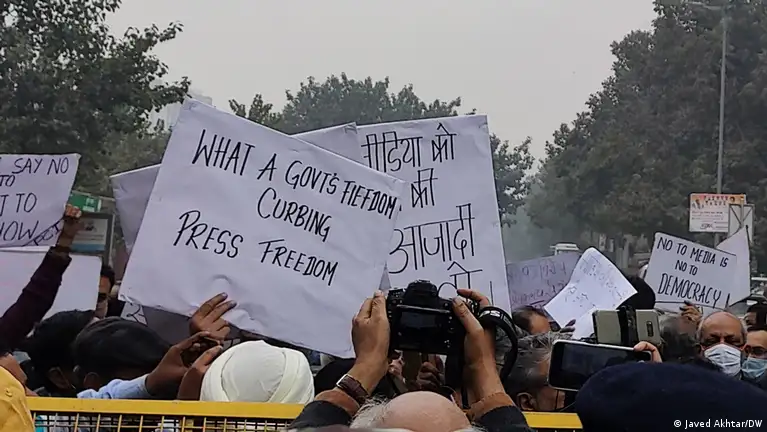 SAY NO
TO
TO
WHAT A GOVT'S FIEFDOM
CURBING
PRESS FREEDOM
मीडिया को
की
आजादी
दो
NO TO MEDIA IS
NO TO
DEMOCRACY!
© Javed Akhtar/DW